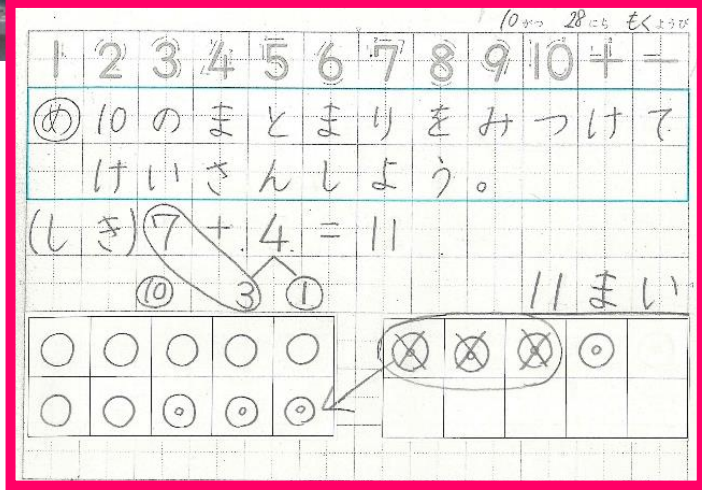 10がつ 28にち もくようび
1 2 3 4 5 6 7 8 9 10 + −
め 10のまとまりをみつけて
けいさんしよう。
(しき) 7 + 4 = 11
10 3 1
11まい